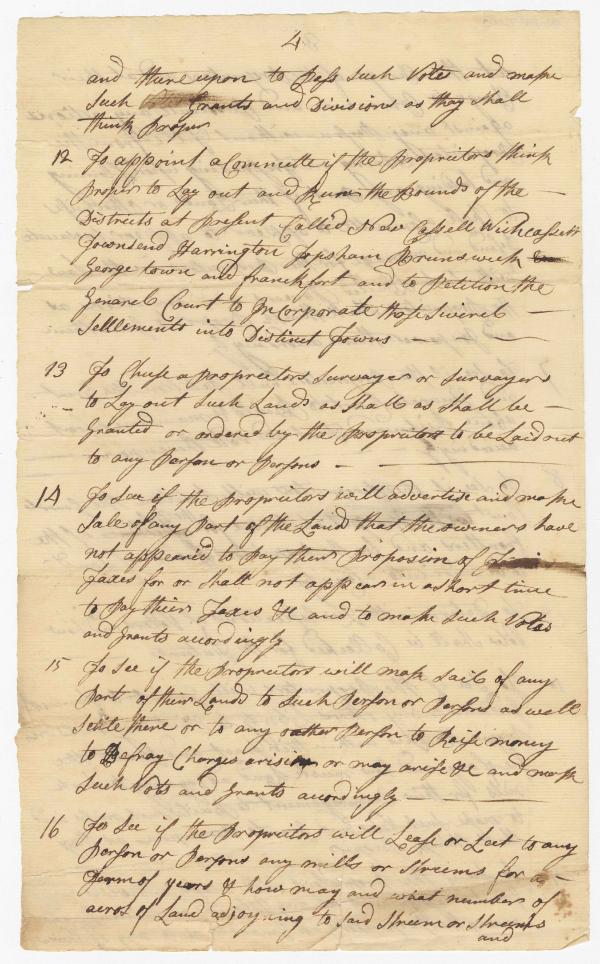 4
and there upon to Pass Such Votes and make
Such Grants and Divisions as they Shall
think Proper
12 To appoint a Committe if the Proprietors think
Proper to Lay out and Run the Bounds of the —
Districts at Present Called New Cassell Wichcassett
Townsend Harrington Topsham Brunswick
George town and franckfort and to Petition the
Generel Court to InCorporate those Severel —
Settlements into Distinct Towns — — —
13 To Chuse a Proprietors Survayer or Survayers
to Lay out Such Lands as Shall as Shall be —
Granted or ordered by the Proprietors to be Laid out
to any Person or Persons — —
14 To See if the Proprietors will advertise and make
Sale of any Part of the Lands that the owners have
not appeared to Pay their Proposion of
Taxes for or Shall not appear in a Short time
to Pay their Taxes &c and to make Such Votes
and Grants accordingly
15 To See if the Proprietors will make Sail of any
Part of their Lands to Such Person or Persons as will
Settle there or to any outher Person to Raise money
to Defray Charges arising or may arise &c and make
Such Vots and Grants accordingly — —
16 To See if the Proprietors will Lease or Leet to any
Person or Persons any mills or Streems for a —
Term of years & how may and what number of
acros of Land adjoyning to Said Streem or Streems
and